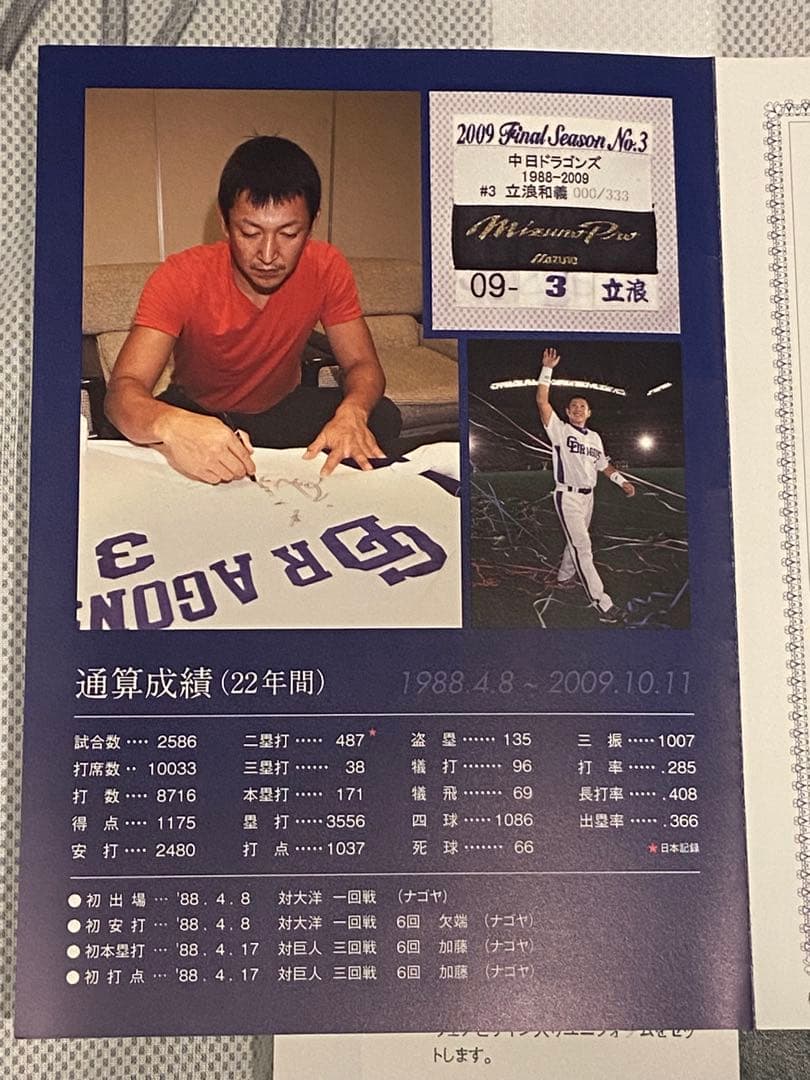 2009 Final Season No.3
中日ドラゴンズ
1988-2009
#3 立浪和義 000/333
Mizuno Pro
MIZUNO
09- 3 立浪
DRAGONS
3
DRAGONS
通算成績(22年間) 1988.4.8 ~ 2009.10.11
試合数‥‥ 2586 二塁打‥‥‥ 487★ 盗 塁‥‥‥ 135 三 振‥‥‥1007
打席数‥ 10033 三塁打‥‥‥ 38 犠 打‥‥‥ 96 打 率‥‥‥.285
打 数‥‥ 8716 本塁打‥‥‥ 171 犠 飛‥‥‥ 69 長打率‥‥‥.408
得 点‥‥ 1175 塁 打‥‥‥3556 四 球‥‥‥1086 出塁率‥‥‥.366
安 打‥‥ 2480 打 点‥‥‥1037 死 球‥‥‥‥ 66 ★日本記録
●初 出 場 … '88 . 4 . 8 対大洋 一回戦 (ナゴヤ)
●初 安 打 … '88 . 4 . 8 対大洋 一回戦 6回 欠端 (ナゴヤ)
●初本塁打 … '88 . 4 . 17 対巨人 三回戦 6回 加藤 (ナゴヤ)
●初 打 点 … '88 . 4 . 17 対巨人 三回戦 6回 加藤 (ナゴヤ)
トします。